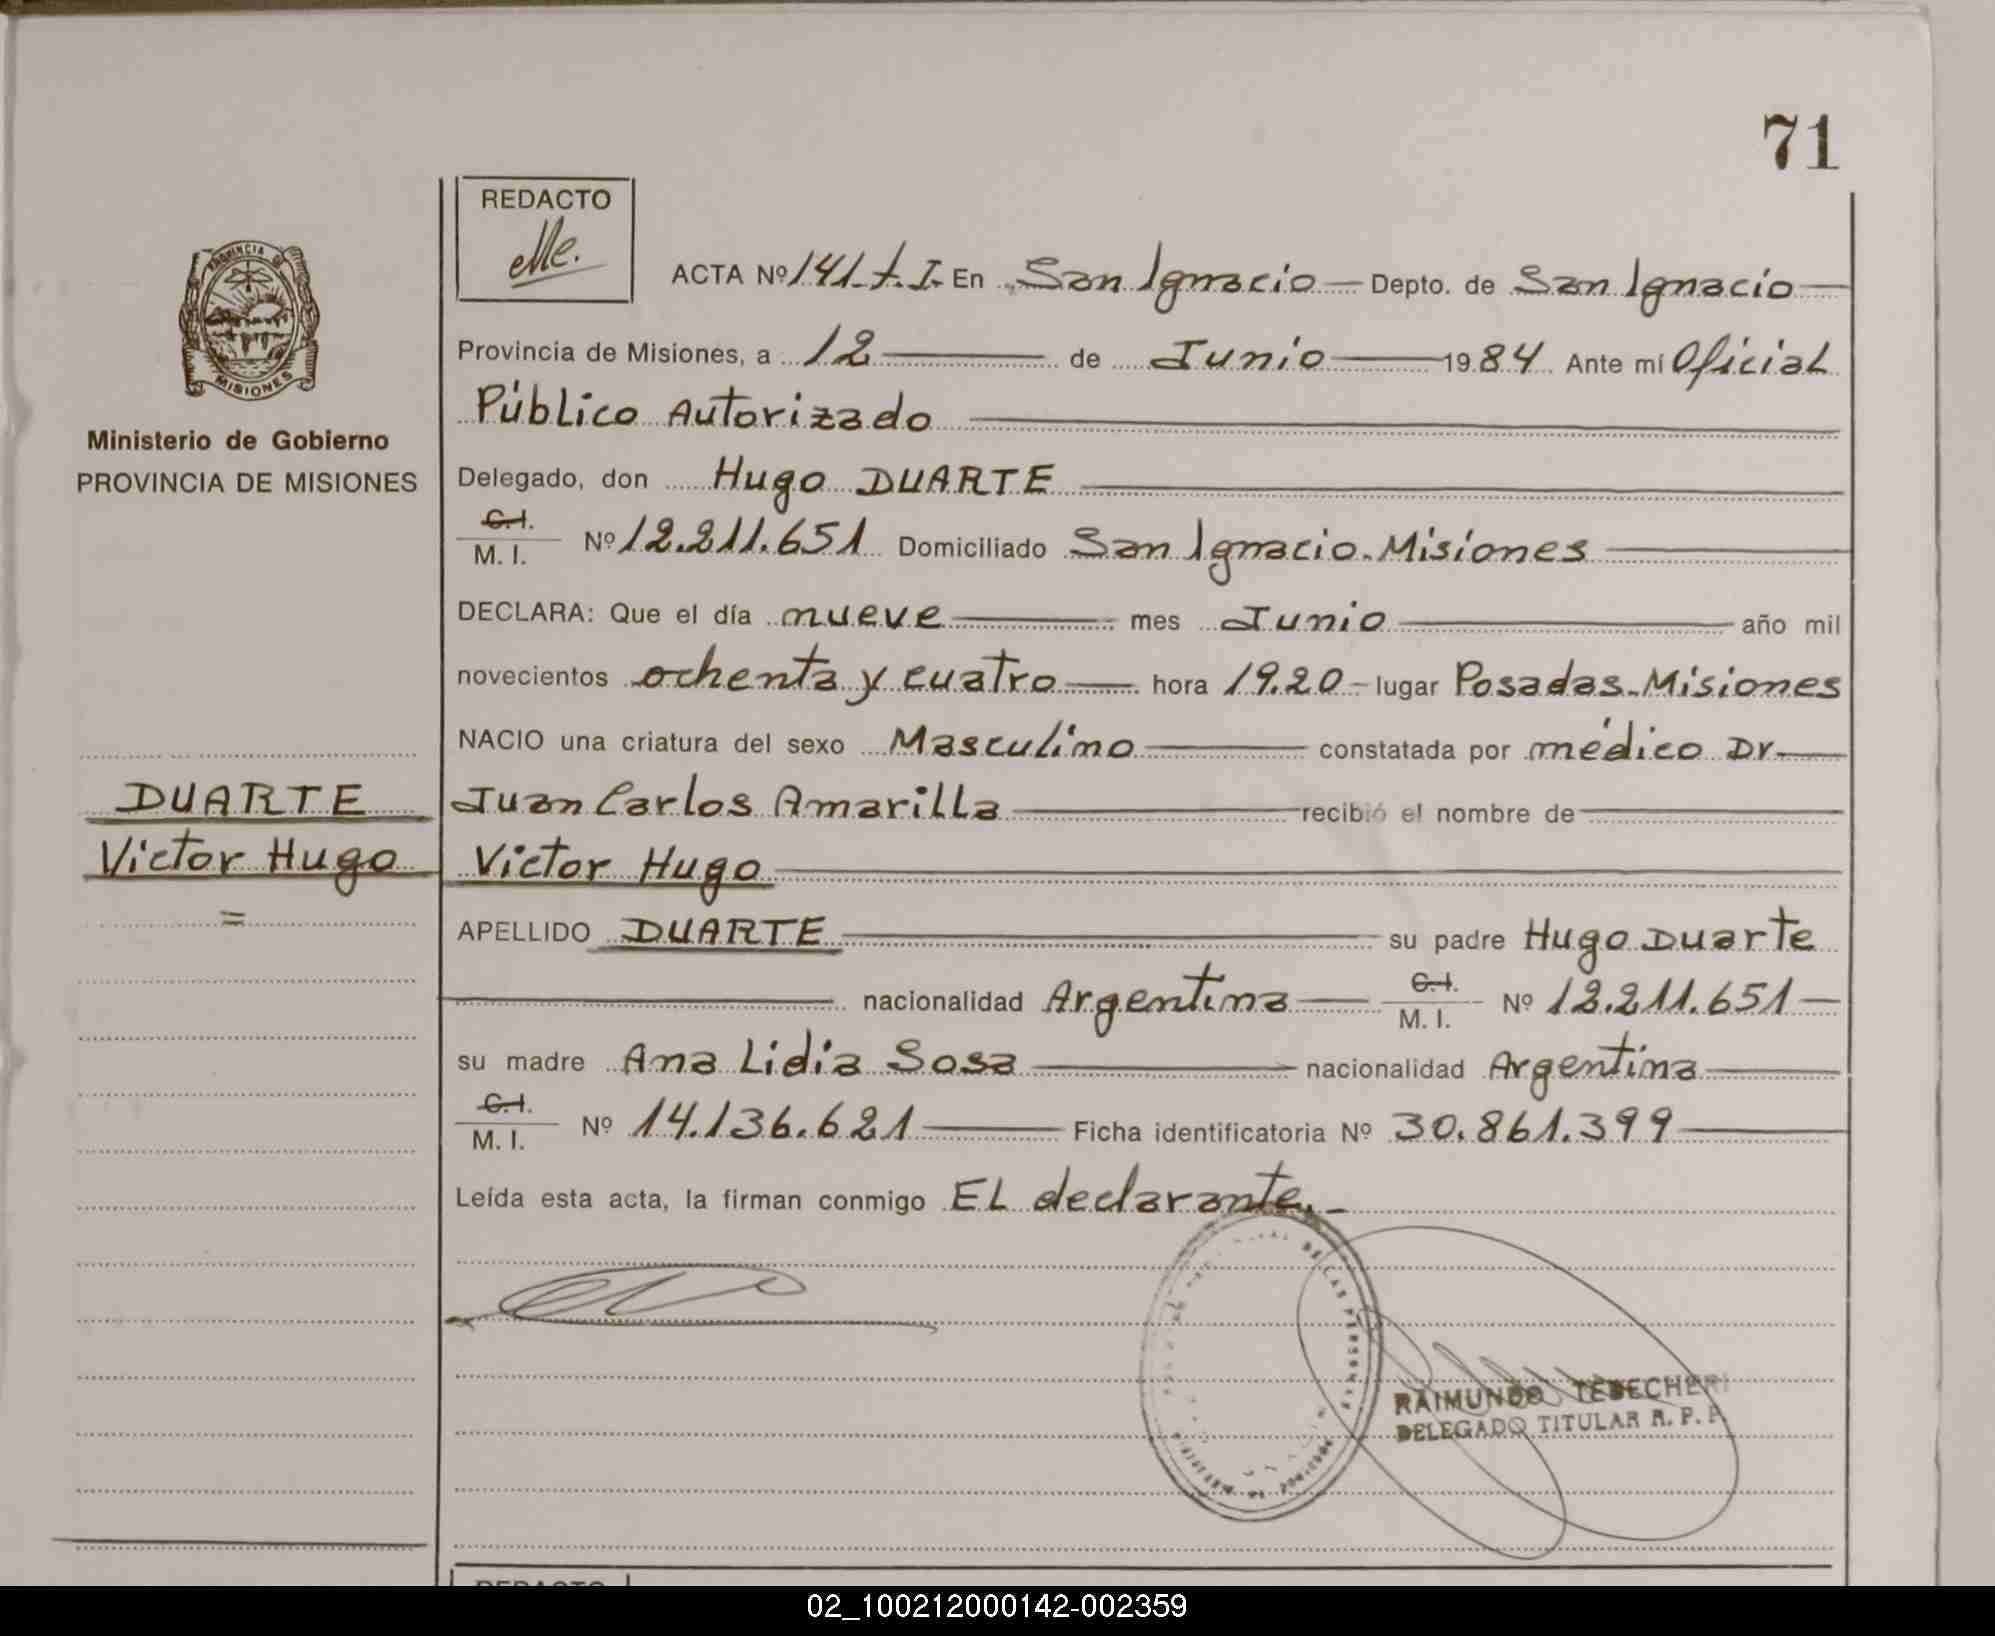 71
REDACTO
Me.
PROVINCIA DE
MISIONES
Ministerio de Gobierno
PROVINCIA DE MISIONES
ACTA Nº 141.T.I. En San Ignacio Depto. de San Ignacio
Provincia de Misiones, a 12 de Junio 1984 Ante mí Oficial
Público Autorizado
Delegado, don Hugo DUARTE
C.I.
M. I. Nº 12.211.651 Domiciliado San Ignacio-Misiones
DECLARA: Que el día nueve mes Junio año mil
novecientos ochenta y cuatro hora 19.20 lugar Posadas-Misiones
NACIO una criatura del sexo Masculino constatada por médico Dr.
DUARTE
Victor Hugo
=
Juan Carlos Amarilla recibió el nombre de
Victor Hugo
APELLIDO DUARTE su padre Hugo Duarte
nacionalidad Argentina C.I. M. I. Nº 12.211.651
su madre Ana Lidia Sosa nacionalidad Argentina
C.I.
M. I. Nº 14.136.621 Ficha identificatoria Nº 30.861.399
Leída esta acta, la firman conmigo EL declarante.-
DE LAS PERSONAS
RAIMUNDO TEBECHERI
DELEGADO TITULAR R. P. P.
REDACTO
02_100212000142-002359